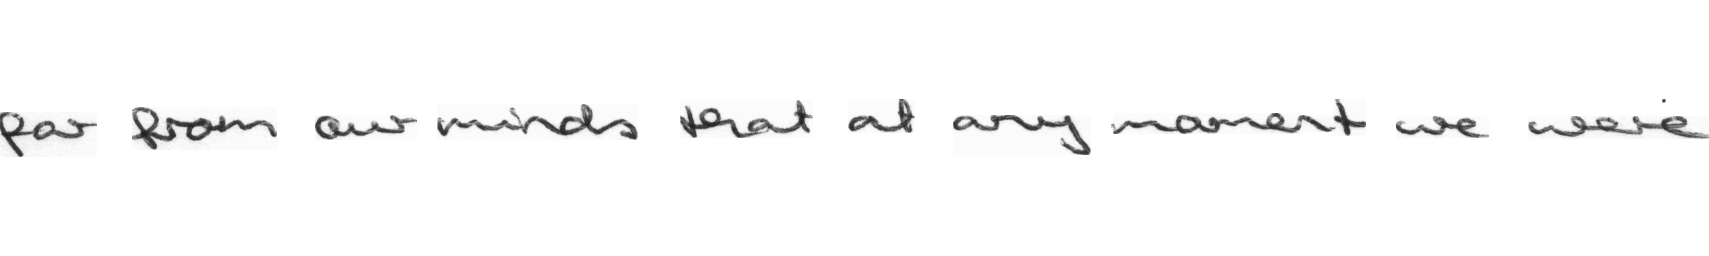 far from our minds that at any moment we were